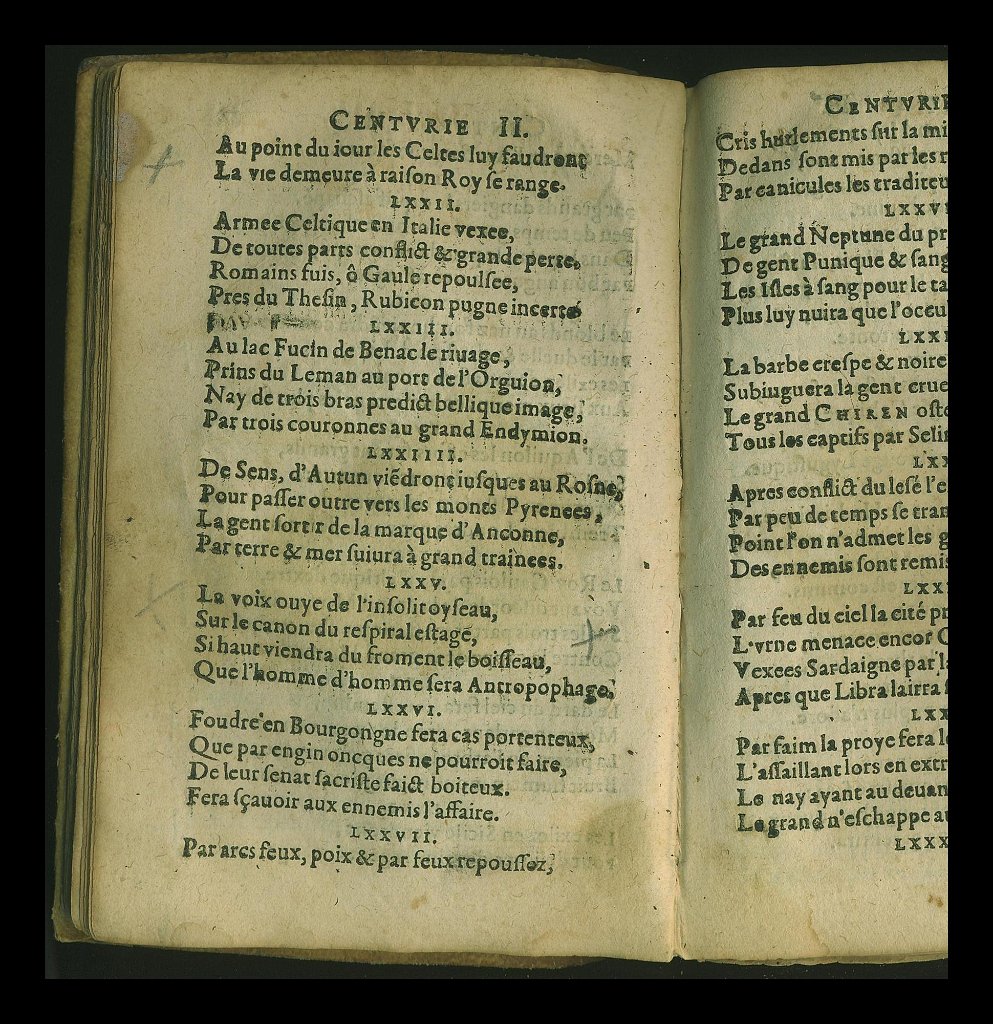 CENTVRIE II.
Au point du iour les Celtes luy faudront
La vie demeure à raison Roy se range.
LXXII.
Armee Celtique en Italie vexee,
De toutes parts conflict & grande perte,
Romains fuis, ô Gaule repoulsee,
Pres du Thesin, Rubicon pugne incerte
LXXIII.
Au lac Fucin de Benac le riuage,
Prins du Leman au port de l'Orguion,
Nay de trois bras predict bellique image,
Par trois couronnes au grand Endymion.
LXXIIII.
De Sens, d'Autun viẽdront iusques au Rosne,
Pour passer outre vers les monts Pyrenees,
La gent sortir de la marque d'Anconne,
Par terre & mer suiura à grand trainees.
LXXV.
La voix ouye de l'insolit oyseau,
Sur le canon du respiral estage,
Si haut viendra du froment le boisseau,
Que l'homme d'homme sera Antropophage.
LXXVI.
Foudre en Bourgongne fera cas portenteux,
Que par engin oncques ne pourroit faire,
De leur senat sacriste faict boiteux.
Fera sçauoir aux ennemis l'affaire.
LXXVII.
Par arcs feux, poix & par feux repoussez,
CENTVRIE
Cris hurlements sur la mi
Dedans sont mis par les r
Par canicules les traditeu
LXXVI
Le grand Neptune du pr
De gent Punique & sang
Les Isles à sang pour le ta
Plus luy nuira que l'occul
LXXI
La barbe crespe & noire
Subiuguera la gent crue
Le grand CHIREN oste
Tous les captifs par Selin
LXX
Apres conflict du lesé l'e
Par peu de temps se tran
Point l'on n'admet les g
Des ennemis sont remis
LXXX
Par feu du ciel la cité pr
L'vrne menace encor
Vexees Sardaigne par la
Apres que Libra lairra
LXX
Par faim la proye fera l
L'assaillant lors en extr
Le nay ayant au deuan
Le grand n'eschappe au
LXXX